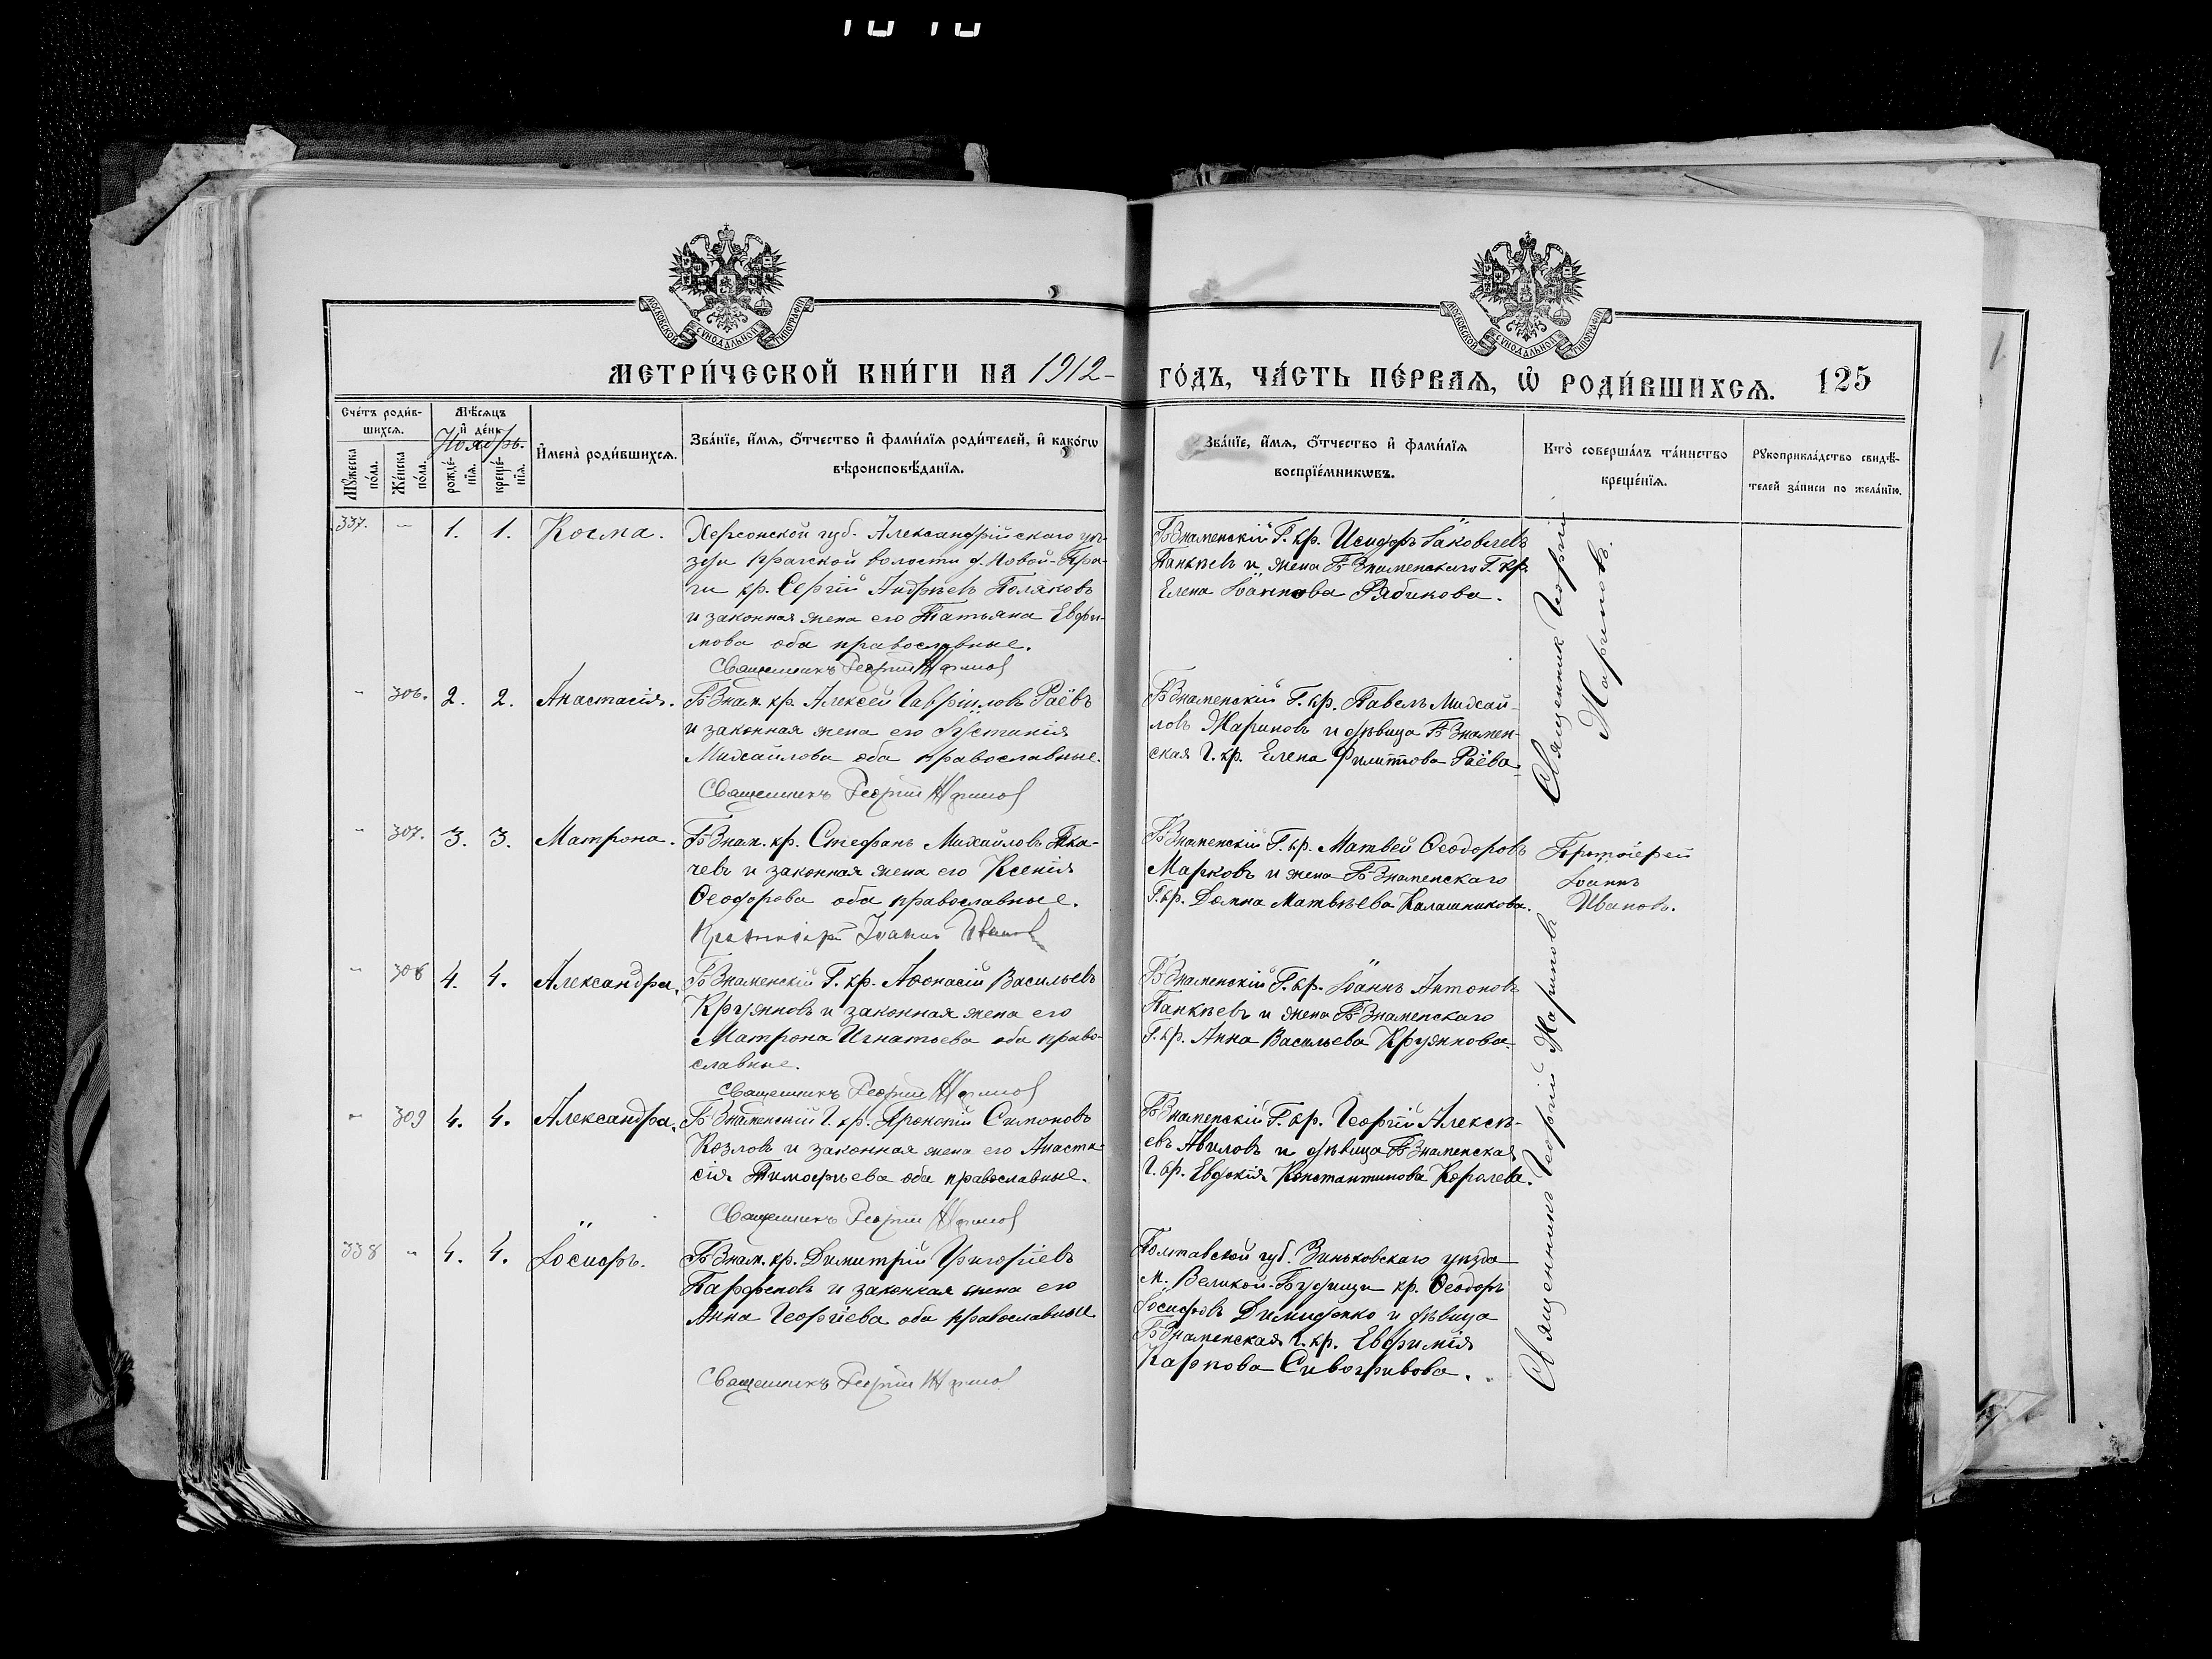 МОСКОВСКОЙ СѴНОДАЛЬНОЙ ТИПОГРАФІИ
МОСКОВСКОЙ СѴНОДАЛЬНОЙ ТИПОГРАФІИ
МЕТРИ́ЧЕСКОЙ КНИ́ГИ НА 1912-
ГО́ДЪ, ЧА́СТЬ ПЕ́РВАѦ, Ѡ҆ РОДИ́ВШИХСѦ. 125
Сче́тъ роди́в-
шихсѧ.
Мꙋ́жеска по́ла.
Же́нска по́ла.
Мѣ́сѧцъ
и҆ де́нь
Ноябрь.
рожде́-нїѧ.
креще́-нїѧ.
И҆мена̀ роди́вшихсѧ.
Зва́нїе, и҆́мѧ, ѻ҆́тчество и҆ фами́лїѧ роди́телей, и҆ како́гѡ
вѣроисповѣ́данїѧ.
Зва́нїе, и҆́мѧ, ѻ҆́тчество и҆ фами́лїѧ
воспрїе́мникѡвъ.
Кто̀ соверша́лъ та́инство
креще́нїѧ.
Рꙋкоприкла́дство свидѣ́-
телей за́писи по жела́нїю.
337. - 1. 1. Косма.
Херсонской губ. Александрійскаго уѣ-
зда Прагской волости д. Новой-Пра-
ги кр. Сергій Андреевъ Поляковъ
и законная жена его Татьяна Евфи-
мова оба православные.
Священникъ Георгій Жариновъ
Б-Знаменскій Г. кр. Исидоръ Іаковлевъ
Панкѣевъ и жена Б-Знаменскаго Г. кр.
Елена Іоаннова Рябикова.
Священник Георгій
Жариновъ.
- 306. 2. 2. Анастасія.
Б-Знам. кр. Алексѣй Гавріиловъ Раёвъ
и законная жена его Іустинія
Михайлова оба православные.
Священникъ Георгій Жариновъ
Б-Знаменскій Г. кр. Павелъ Михай-
ловъ Жариновъ и дѣвица Б-Знамен-
ская Г. кр. Елена Филиппова Раёва.
- 307. 3. 3. Матрона.
Б-Знам. кр. Стефанъ Михайловъ Тка-
чевъ и законная жена его Ксенія
Ѳеодорова оба православные.
Протоіерей Іоаннъ Ивановъ
Б-Знаменскій Г. кр. Матвей Ѳеодоровъ
Марковъ и жена Б-Знаменскаго
Г. кр. Домна Матвѣева Калашникова.
Протоіерей
Іоаннъ
Ивановъ.
- 308 4. 4. Александра.
Б-Знаменскій Г. кр. Аѳонасій Васильевъ
Кружновъ и законная жена его
Матрона Игнатьева оба право-
славные.
Священникъ Георгій Жариновъ
Б-Знаменскій Г. кр. Іоаннъ Антоновъ
Панкѣевъ и жена Б-Знаменскаго
Г. кр. Анна Васильева Кружнова.
Священникъ Георгій Жариновъ
- 309 4. 4. Александра.
Б-Знаменскій Г. кр. Симоновъ
Козловъ и законная жена его Анаста-
сія Тимофѣева оба православные.
Священникъ Георгій Жариновъ
Б-Знаменскій Г. кр. Георгій Алексѣ-
евъ Авиловъ и дѣвица Б-Знаменская
Г. кр. Евдокія Константинова Королева.
338 - 4. 4. Іосифъ.
Б-Знам. кр. Димитрій Григоріевъ
Парфеновъ и законная жена его
Анна Георгіева оба православные
Священникъ Георгій Жариновъ
Полтавской губ. Зиньковскаго уѣзда
м. Великой-Будищи кр. Ѳеодоръ
Іосифовъ Димиденко и дѣвица
Б-Знаменская Г. кр. Евфимія
Карпова Сивогривова.